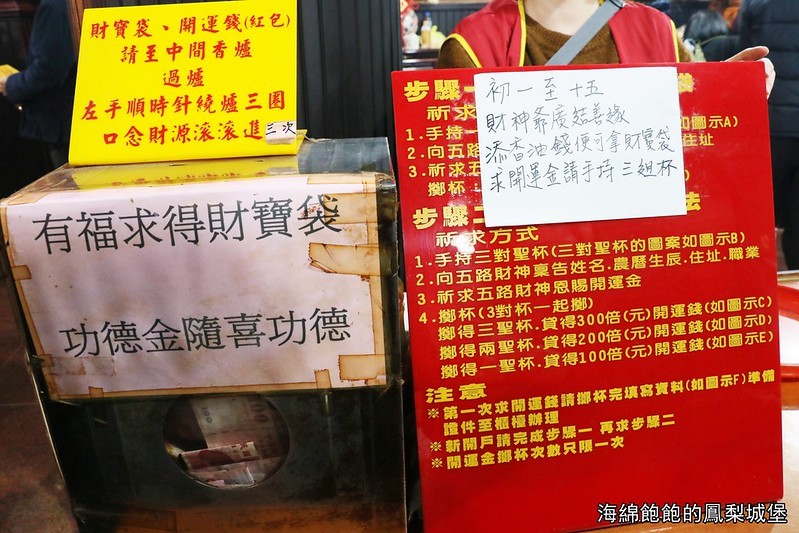 財寶袋、開運錢(紅包)
請至中間香爐
過爐
左手順時針繞爐三圈
口念財源滾滾進三次
有福求得財寶袋
功德金隨喜功德
初一至十五
財神爺廣結善緣
添香油錢便可拿財寶袋
求開運金請手持三組杯
步驟一
祈求
1.手持一
如圖示A)
2.向五路
住址
3.祈求五
擲杯
步驟二
法
祈求方式
1.手持三對聖杯(三對聖杯的圖案如圖示B)
2.向五路財神稟告姓名.農曆生辰.住址.職業
3.祈求五路財神恩賜開運金
4.擲杯(3對杯一起擲)
擲得三聖杯.貸得300倍(元)開運錢(如圖示C)
擲得兩聖杯.貸得200倍(元)開運錢(如圖示D)
擲得一聖杯.貸得100倍(元)開運錢(如圖示E)
注意
※第一次求開運錢請擲杯完填寫資料(如圖示F)準備
證件至櫃檯辦理
※新開戶請完成步驟一 再求步驟二
※開運金擲杯次數只限一次
海綿飽飽的鳳梨城堡